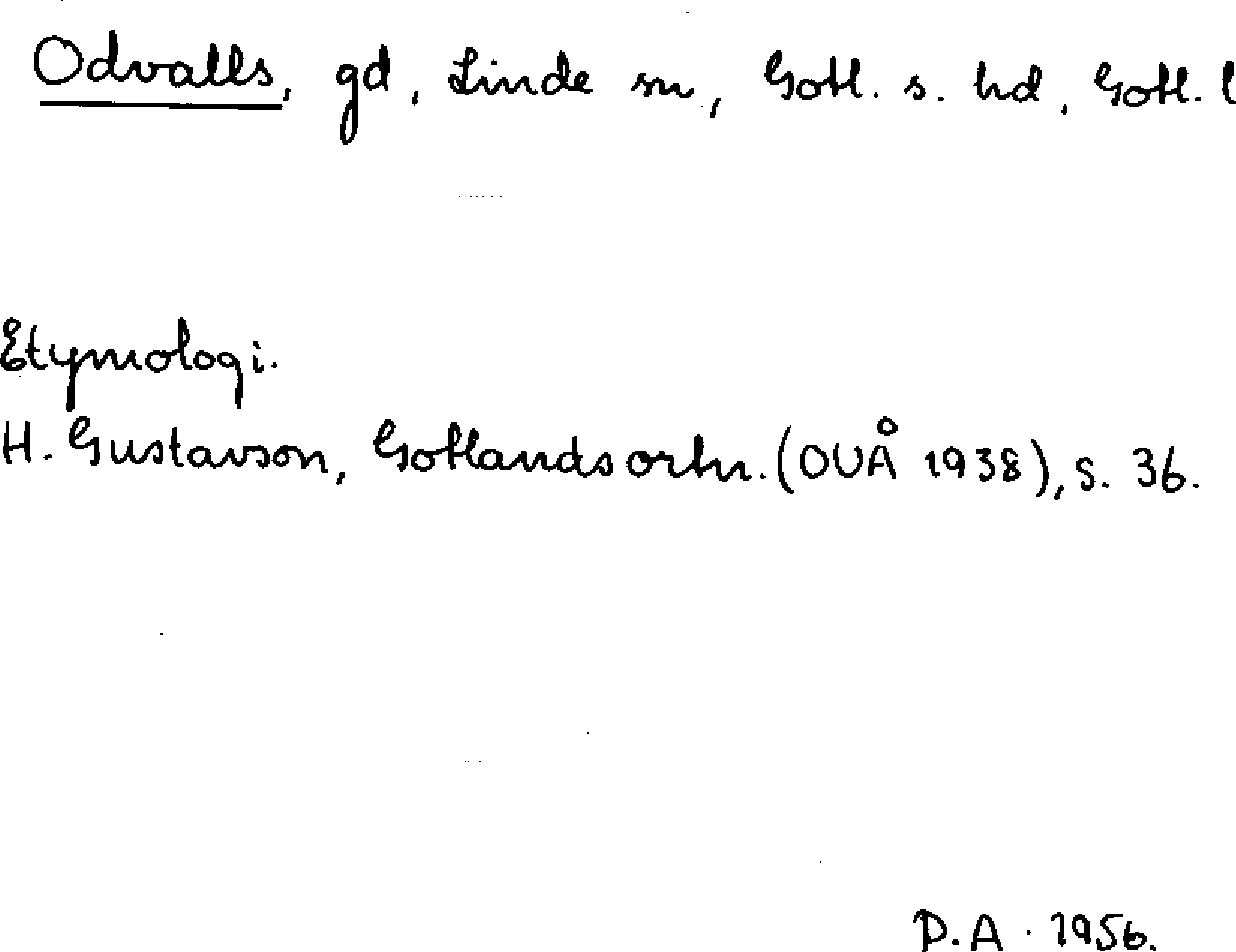 Odvalls, gd, Linde sn, Gotl. s. hd, Gotl. l
Etymologi.
H. Gustavson, Gotlandsortn. (OUÅ 1938), s. 36.
D.A. 1956.